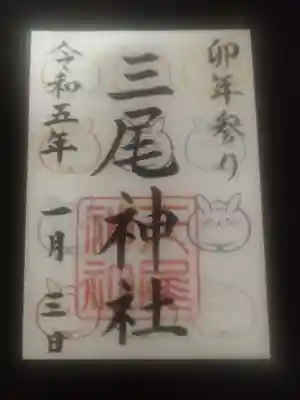 卯年参り
三尾神社
令和五年 一月 三日
三尾神社